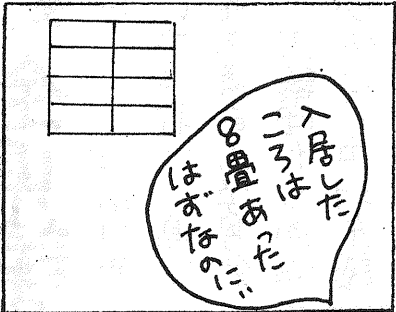 入居した
ころは
8畳あった
はずなのに‥